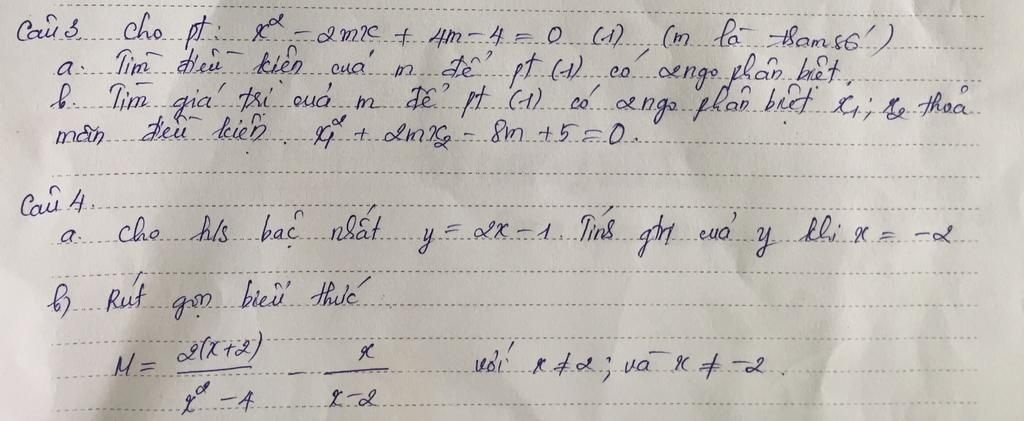 Câu 3. Cho pt: x² - 2mx + 4m - 4 = 0 (1) (m là tham số)
a. Tìm điều kiện của m để pt (1) có 2 ngo phân biệt.
b. Tìm giá trị của m để pt (1) có 2 ngo phân biệt x₁; x₂ thoả
mãn điều kiện. x₁² + 2mx₂ - 8m + 5 = 0.
Câu 4.
a. Cho h/s bậc nhất y = 2x - 1. Tính gtrị của y khi x = -2
b) Rút gọn biểu thức
M = 2(x+2)/(x² - 4) - x/(x-2) với x ≠ 2; và x ≠ -2.